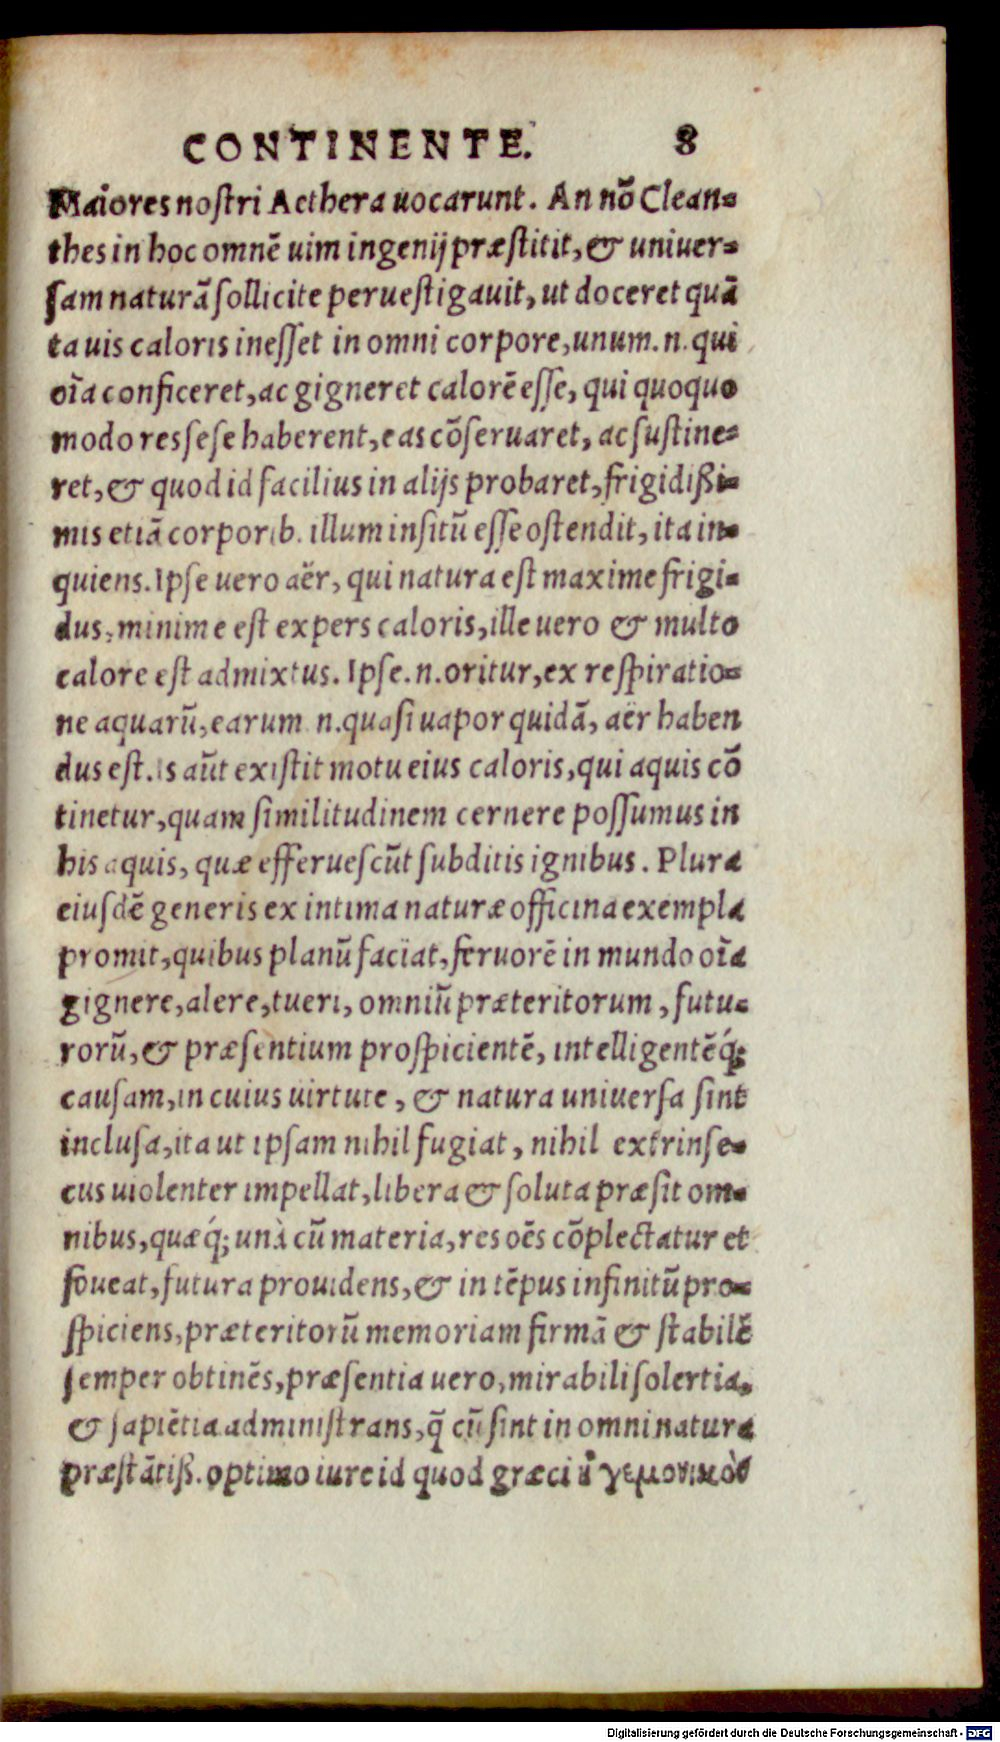 CONTINENTE. 8
Maiores nostri Aethera uocarunt. An nõ Clean-
thes in hoc omnẽ uim ingenij præstitit, & uniuer-
sam naturã sollicite peruestigauit, ut doceret quã
ta uis caloris inesset in omni corpore, unum. n. qui
oĩa conficeret, ac gigneret calorẽ esse, qui quoquo
modo res sese haberent, eas cõseruaret, ac sustine-
ret, & quod id facilius in alijs probaret, frigidißi-
mis etiã corporib. illum insitũ esse ostendit, ita in-
quiens. Ipse uero aër, qui natura est maxime frigi-
dus, minime est expers caloris, ille uero & multo
calore est admixtus. Ipse. n. oritur, ex respiratio-
ne aquarũ, earum n. quasi uapor quidã, aër haben
dus est. is aũt existit motu eius caloris, qui aquis cõ
tinetur, quam similitudinem cernere possumus in
his aquis, quæ efferuescũt subditis ignibus. Plura
eiusdẽ generis ex intima naturæ officina exempla
promit, quibus planũ faciat, feruorẽ in mundo oĩa
gignere, alere, tueri, omniũ præteritorum, futu-
rorũ, & præsentium prospicientẽ, intelligentẽq́;
causam, in cuius uirtute, & natura uniuersa sint
inclusa, ita ut ipsam nihil fugiat, nihil extrinse-
cus uiolenter impellat, libera & soluta præsit om-
nibus, quæq́; unà cũ materia, res oẽs cõplectatur et
foueat, futura prouidens, & in tẽpus infinitũ pro-
spiciens, præteritorũ memoriam firmã & stabilẽ
semper obtinẽs, præsentia uero, mirabili solertia,
& sapiẽtia administrans, q̃ cũ sint in omni natura
præstãtiß. optimo iure id quod græci ἡγεμονικὸν
Digitalisierung gefördert durch die Deutsche Forschungsgemeinschaft - DFG